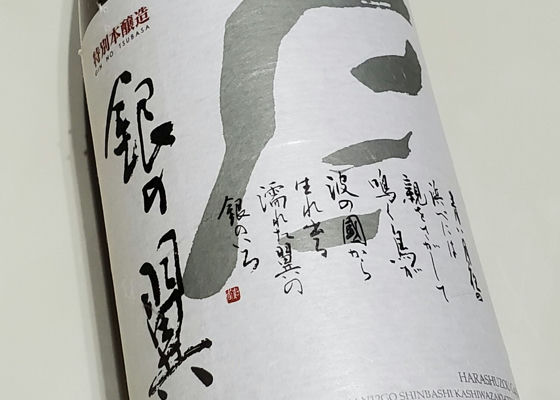 特別本醸造
GIN NO TSUBASA
銀の翼
青い月夜の
浜べには
親をさがして
鳴く鳥が
波の國から
生れ出る
濡れた翼の
銀のいろ
HARASHUZOU
SHINBASHI KASHIWAZAKI